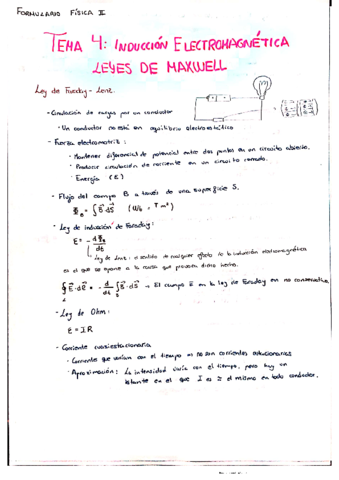 FORMULARIO FÍSICA II
TEMA 4: INDUCCIÓN ELECTROMAGNÉTICA
LEYES DE MAXWELL
Ley de Faraday - Lenz.
- Circulación de cargas por un conductor
· Un conductor no está en equilibrio electrostático
- Fuerza electromotriz:
· Mantener diferencial de potencial entre dos puntos en un circuito abierto.
· Producir circulación de corriente en un circuito cerrado.
· Energía (ε)
- Flujo del campo B a través de una superficie S.
Φ_B = ∫ B⃗ · dS⃗ (Wb = T m²)
- Ley de inducción de Faraday:
ε = - dΦ_B / dt
Ley de Lenz: el sentido de cualquier efecto de la inducción electromagnética
es el que se opone a la causa que produce dicho efecto.
∮ E⃗ · dℓ⃗ = - d/dt ∫ B⃗ · dS⃗ → El campo E en la ley de Faraday es no conservativo
- Ley de Ohm:
ε = I.R
- Corriente cuasiestacionaria
· Corriente que varían con el tiempo no son corrientes estacionarias
· Aproximación: La intensidad varía con el tiempo, pero hay un
instante en el que I es el mismo en todo conductor.